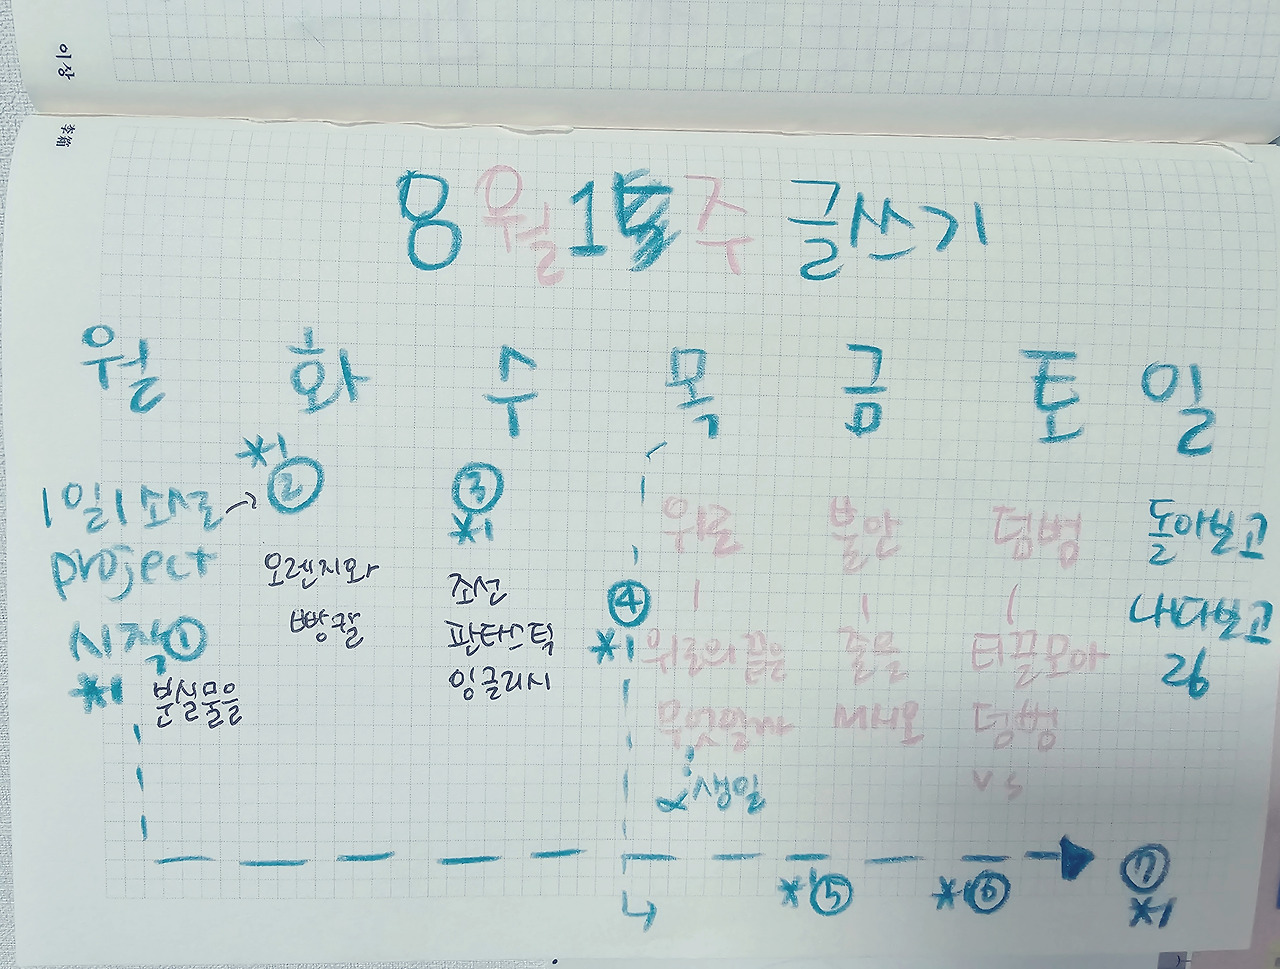 이상
李箱
8월 1주 글쓰기
월 화 수 목 금 토 일
1일 1소서로 → *1 ②
project
시작 ①
*1 분실물을
오렌지와
빵칼
③
*1
조선
판타스틱
잉글리시
④
*1
위로
|
위로의 끝은
무엇일까
생일
불안
|
줄믈
덤벙
|
티끌모아
덤벙
vs
돌아보고
나다보고
26
*1 ⑤
*1 ⑥
⑦
*1